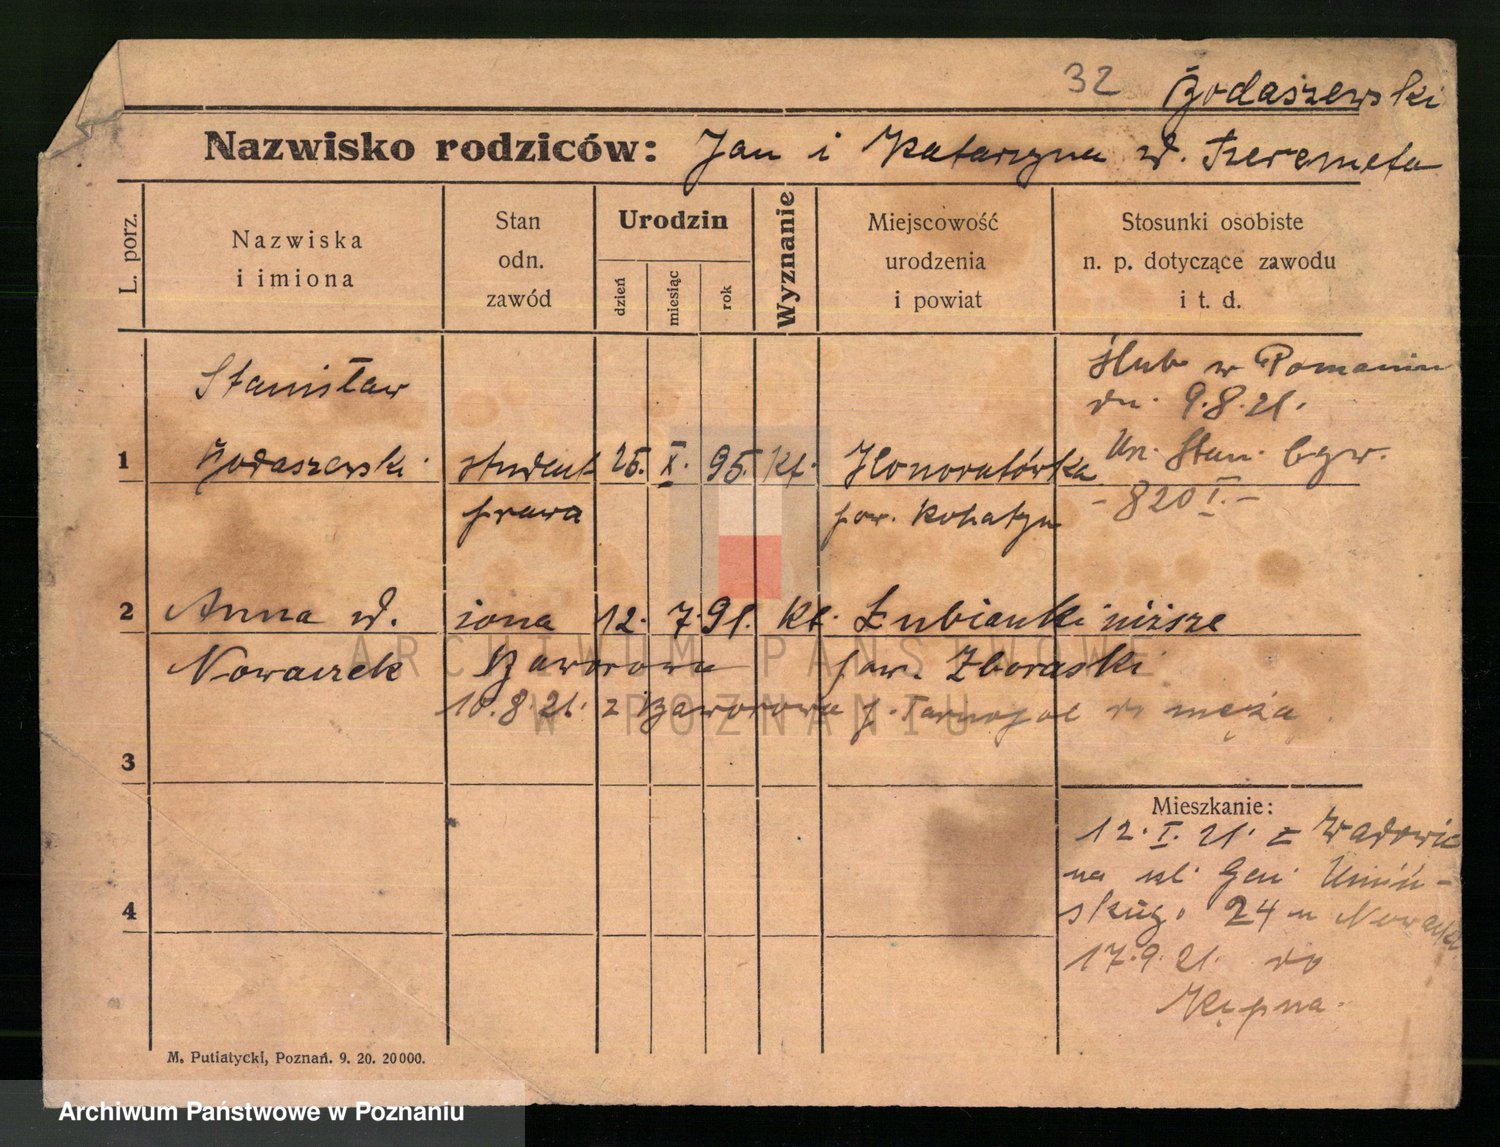 32 Bodaszewski
Nazwisko rodziców: Jan i Katarzyna d. Szeremeta
L. porz.
Nazwiska
i imiona
Stan
odn.
zawód
Urodzin
dzień
miesiąc
rok
Wyznanie
Miejscowość
urodzenia
i powiat
Stosunki osobiste
n. p. dotyczące zawodu
i t. d.
Stanisław
ślub w Poznaniu
dn. 9.8.21.
1 Bodaszewski student 25. X. 95. kt. Honoratówka
Un. Stan. Cyw.
prawa pow. Rohatyn
- 820 I. -
2 Anna d. żona 12. 7. 91. kt. Łubianki niższe
Nowaczek Baworowa pow. Zbaraski
10.8.21. z Baworowa p. Tarnopol do męża
3
Mieszkanie:
12. I. 21. z Wadowic
na ul. Gen. Umiń-
skiego 24 u
4
17.9.21. do
Kępna.
M. Putiatycki, Poznań. 9. 20. 20000.
ARCHIWUM PAŃSTWOWE
W POZNANIU
Archiwum Państwowe w Poznaniu